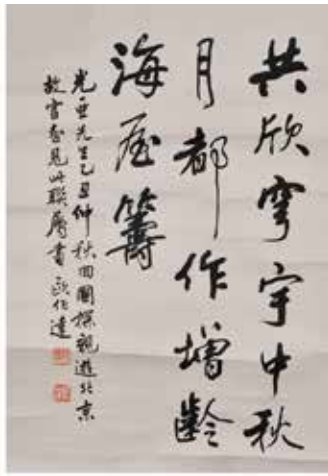 共欣穹宇中秋
月都作增龄
海屋籌
光亜先生乙丑仲秋回國探親遊北京
故宮曾見此聯属書 歐伯達